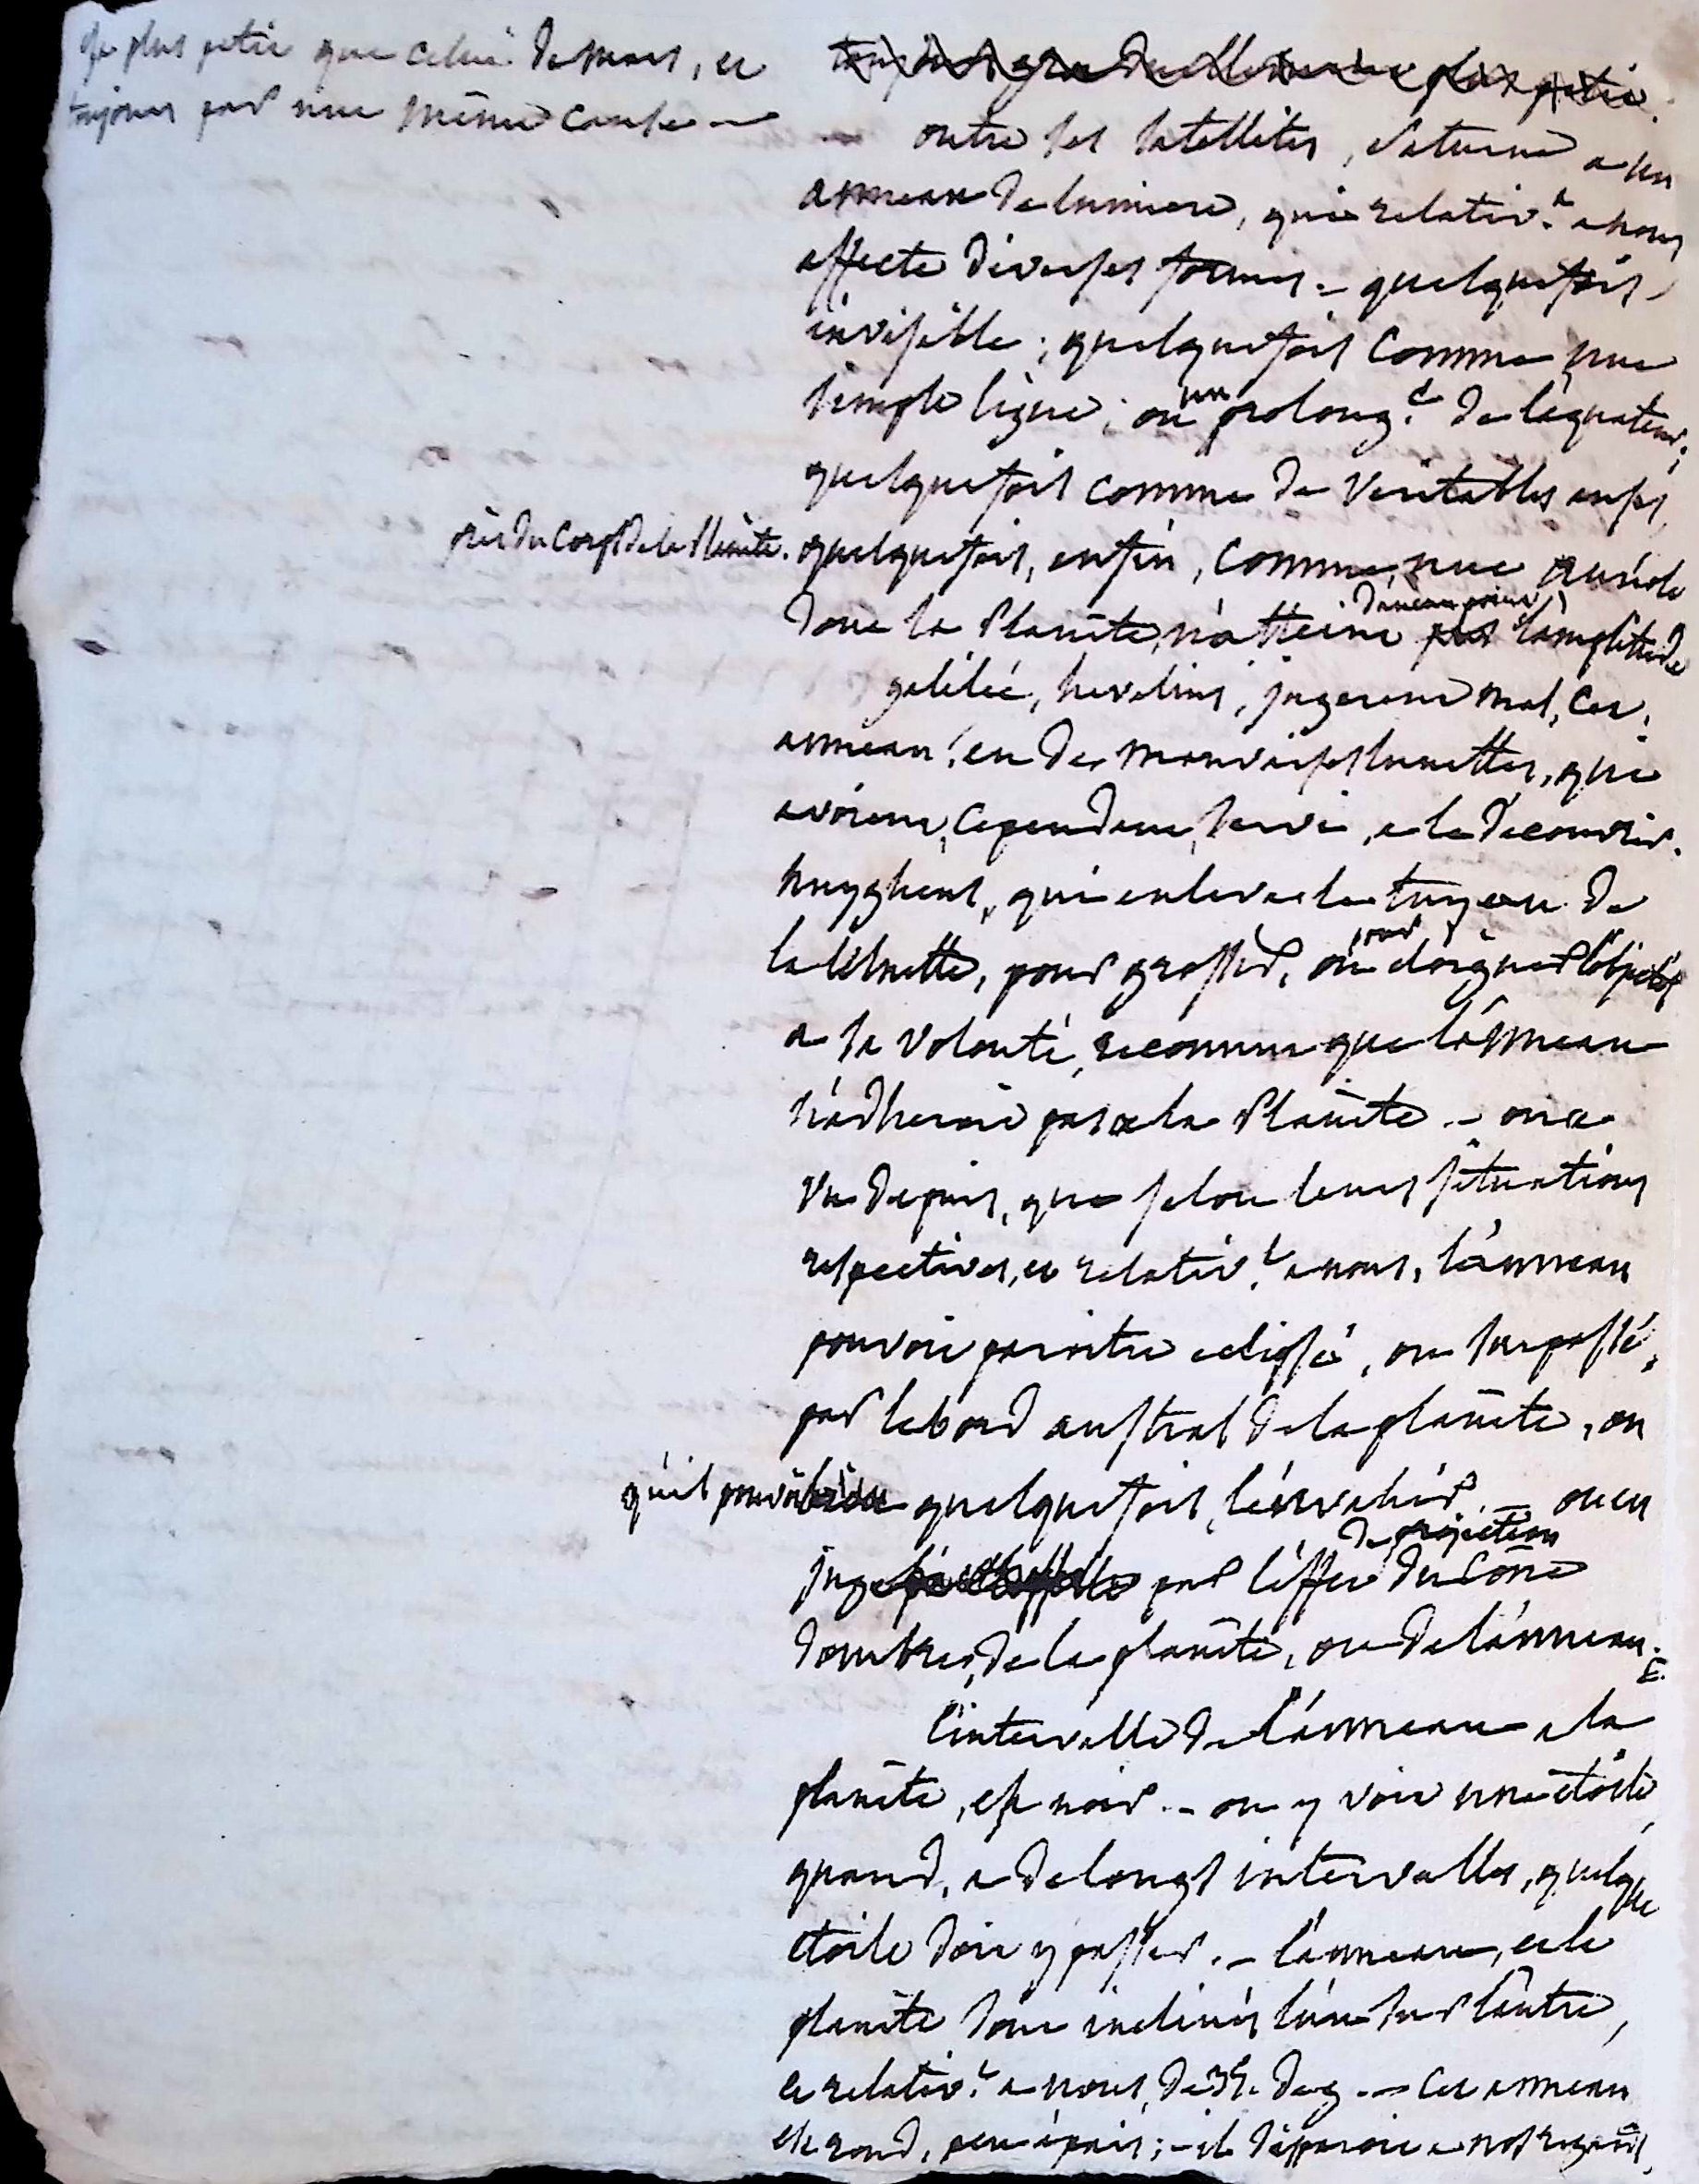 plus petit que celui de mars, et
toujours par une même cause —
outre ses satellites, Saturne a un
anneau de lumiere, qui relativ.t a nous
affecte diverses formes. – quelquefois
invisible ; quelquefois comme une
simple ligne ; ou un prolong.t de l'équateur ;
quelquefois comme de veritables anses,
près du corps de la Planète. quelquefois, enfin, comme, une auréole
dont la Planète, n'atteint l'amplitude
galilée, hevelius, jugerent mal, cet,
anneau, en de mauvaises lunettes, qui
avoient, cependant, servi, a le decouvrir.
huyghens, qui enleva le tuyeau de
la lunette, pour grossir, ou pour eloigner l'objet
a sa volonté, reconnut que l'anneau
n'adheroit pas a la Planète. – on a
vu depuis, que selon leurs situations
respectives, et relativ.t a nous, l'anneau
pouvoit paroitre eclipsé, ou surpassé,
par le bord austral de la planète, ou
qu'il pouvoit quelquefois, l'envahir. – on en
juge par l'effet de projection du cone
d'ombre, de la planète, ou de l'anneau.
l'intervalle de l'anneau a la
planète, est noir. – on y voit une étoile,
quand, a de longs intervalles, quelque
etoile doit y passer. – l'anneau, et la
planète sont inclinés l'un sur l'autre,
et relativ.t a nous, de deg. – cet anneau
est rond, peu épais ; – il disparoit a nos regards,